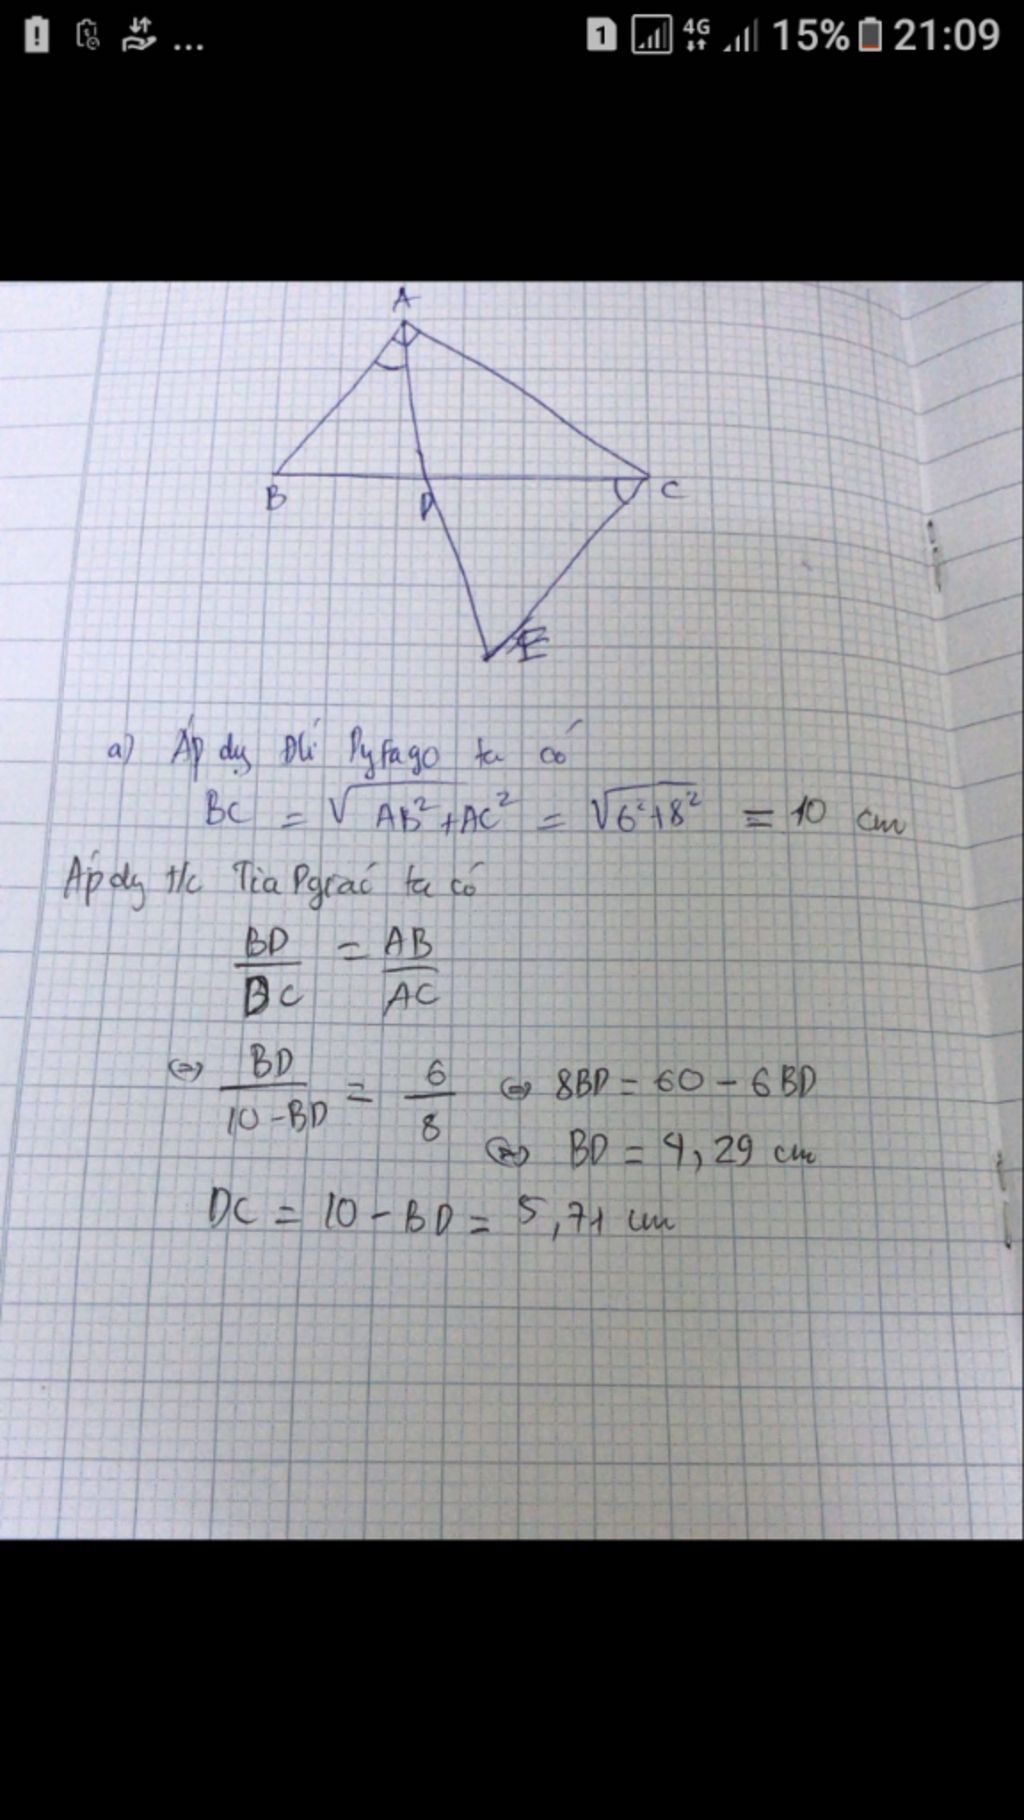 ... 1 4G 15% 21:09
A
B D C
E
a) Áp dg Đlí Pyfago ta có
BC = √AB²+AC² = √6²+8² = 10 cm
Áp dg t/c Tia Pgiác ta có
BD/DC = AB/AC
⇔ BD/10-BD = 6/8 ⇔ 8BD = 60 - 6BD
⇔ BD = 4,29 cm
DC = 10 - BD = 5,71 cm